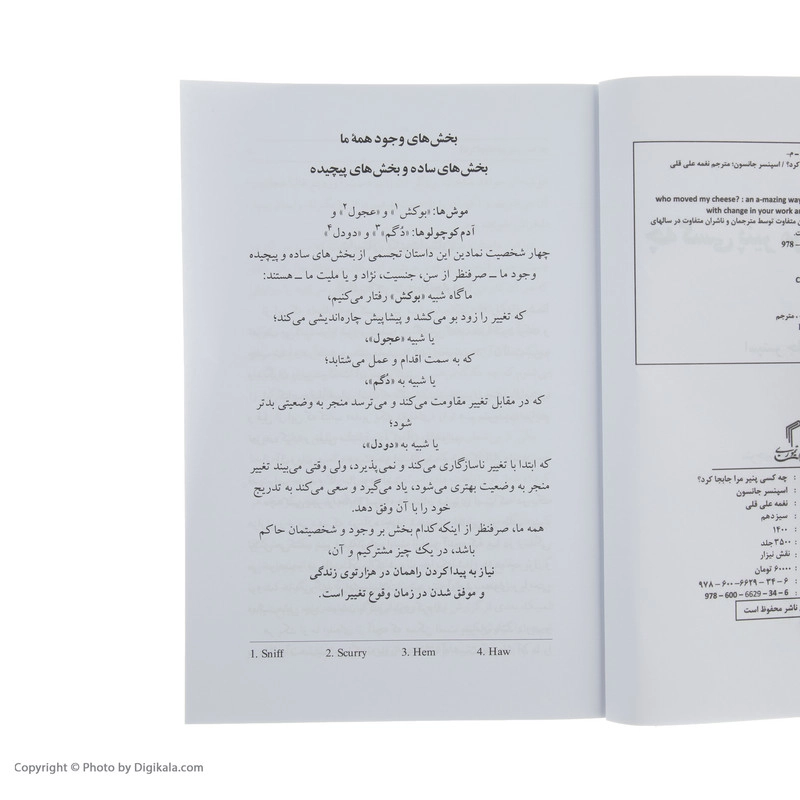 بخش‌های وجود همهٔ ما
بخش‌های ساده و بخش‌های پیچیده
موش‌ها: «بوکش۱» و «عجول۲» و
آدم‌کوچولوها: «دُگم»۳ و «دودل۴»
چهار شخصیت نمادین این داستان تجسمی از بخش‌های ساده و پیچیده
وجود ما ــ صرفنظر از سن، جنسیت، نژاد و یا ملیت ما ــ هستند:
ماگاه شبیه «بوکش» رفتار می‌کنیم،
که تغییر را زود بو می‌کشد و پیشاپیش چاره‌اندیشی می‌کند؛
یا شبیه «عجول»،
که به سمت اقدام و عمل می‌شتابد؛
یا شبیه به «دُگم»،
که در مقابل تغییر مقاومت می‌کند و می‌ترسد منجر به وضعیتی بدتر
شود؛
یا شبیه به «دودل»،
که ابتدا با تغییر ناسازگاری می‌کند و نمی‌پذیرد، ولی وقتی می‌بیند تغییر
منجر به وضعیت بهتری می‌شود، یاد می‌گیرد و سعی می‌کند به تدریج
خود را با آن وفق دهد.
همه ما، صرفنظر از اینکه کدام بخش بر وجود و شخصیتمان حاکم
باشد، در یک چیز مشترکیم و آن،
نیاز به پیدا کردن راهمان در هزارتوی زندگی
و موفق شدن در زمان وقوع تغییر است.
1. Sniff 2. Scurry 3. Hem 4. Haw
کرد؟ / اسپنسر جانسون؛ مترجم نغمه علی قلی
who moved my cheese? : an a-mazing way
with change in your work an
متفاوت توسط مترجمان و ناشران متفاوت در سالهای
978 –
، مترجم
: چه کسی پنیر مرا جابجا کرد؟
: اسپنسر جانسون
: نغمه علی قلی
: سیزدهم
: ۱۴۰۰
: ۳۵۰۰ جلد
: نقش نیزار
: ۶۰۰۰۰ تومان
: ۹۷۸ – ۶۰۰ – ۶۶۲۹ – ۳۴ – ۶
978 – 600 – 6629 – 34 – 6
ناشر محفوظ است
Copyright © Photo by Digikala.com